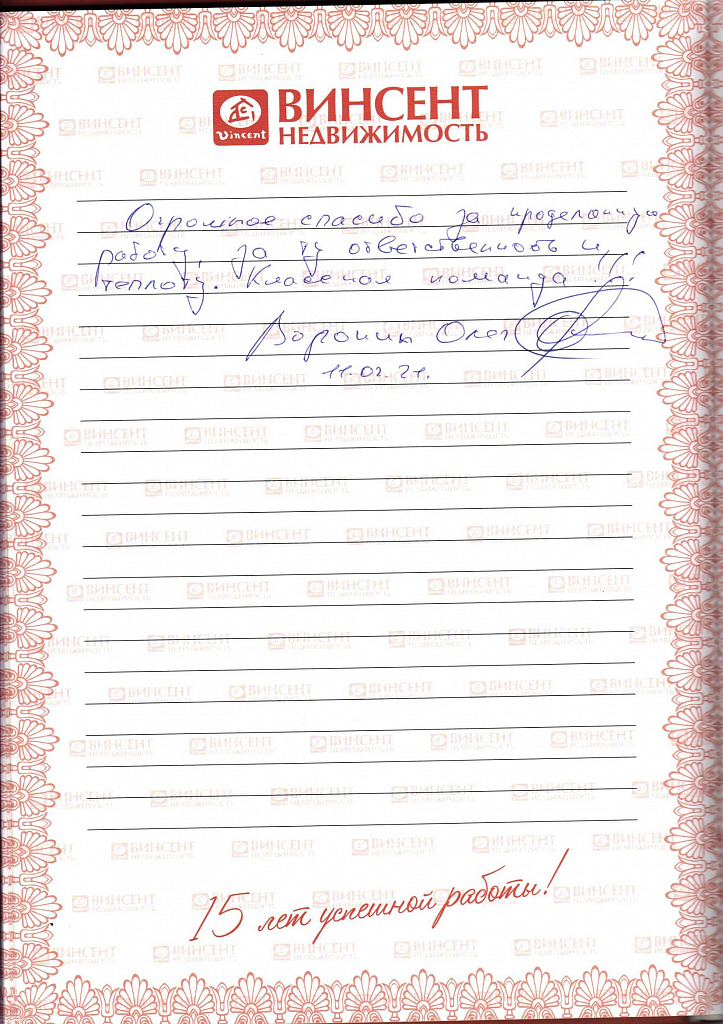 Vincent
ВИНСЕНТ
НЕДВИЖИМОСТЬ
Огромное спасибо за проделанную
работу, за ту ответственность и
теплоту. Классная команда!!!
Воронин Олег
11.02.21.
15 лет успешной работы!